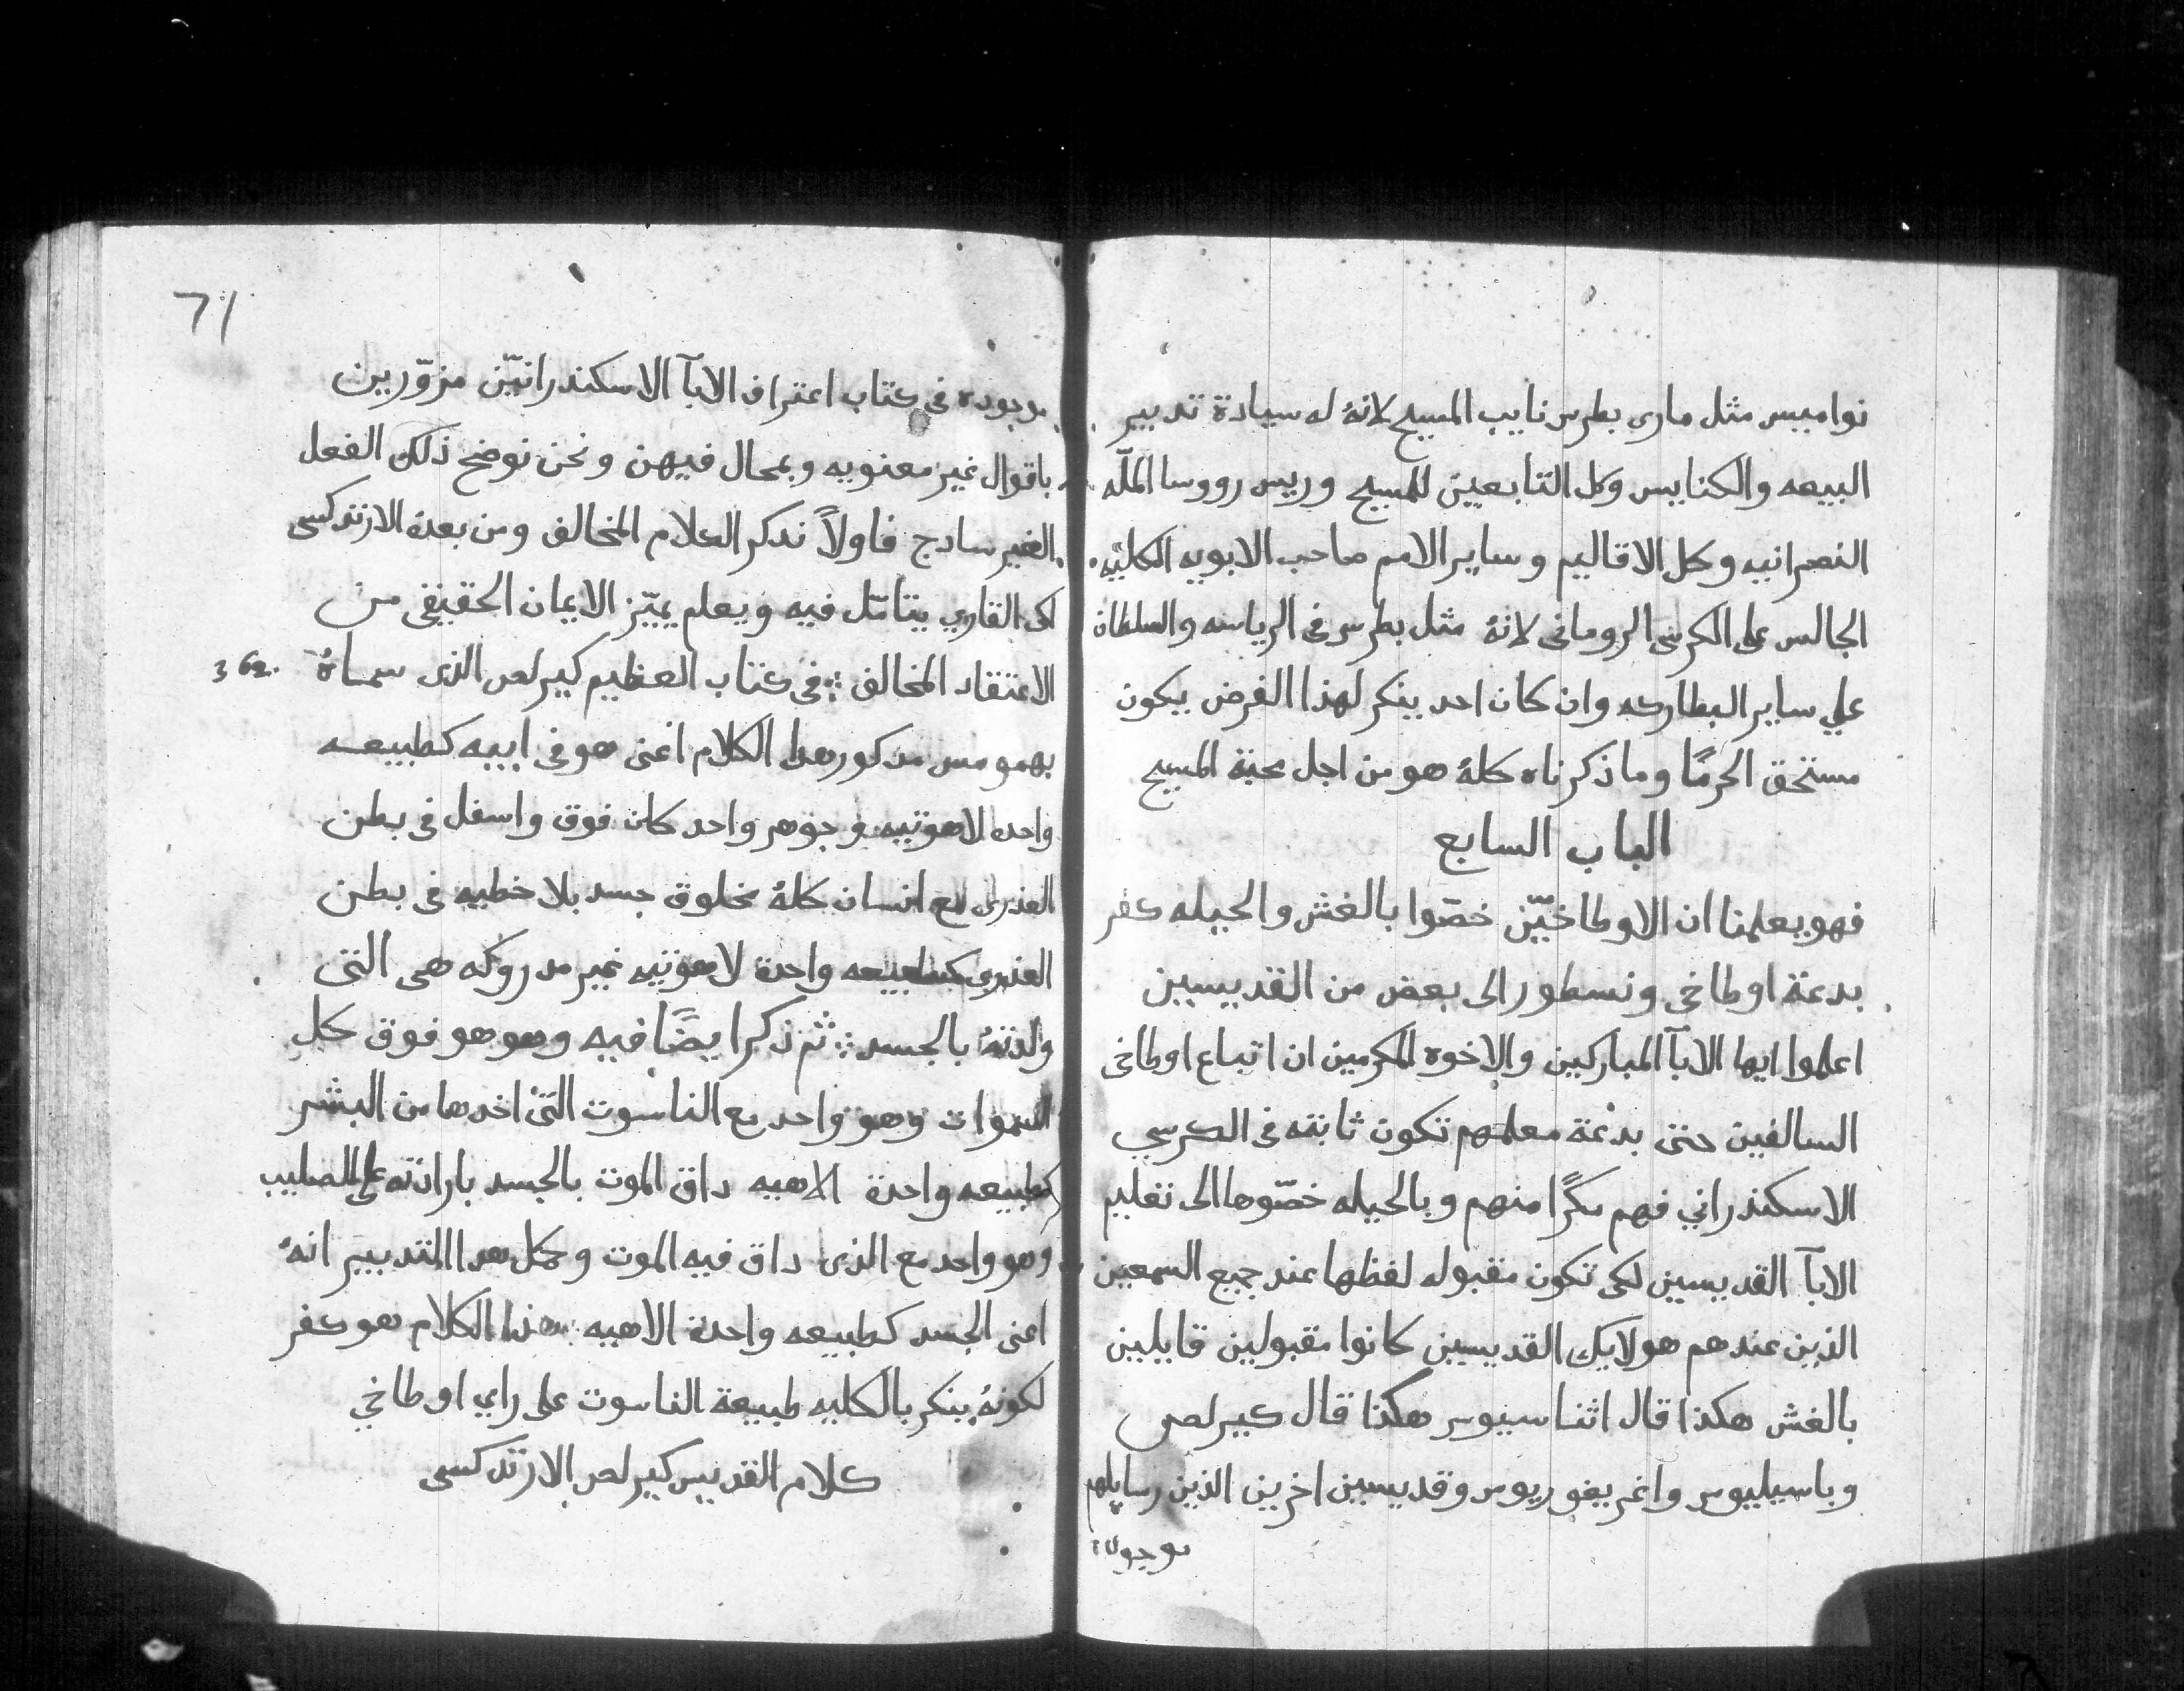 نواميس مثل مارى بطرس نايب المسيح لانهُ له سيادة تدبير
البيعه والكنايس وكل التابعين للمسيح وريس رووسا الملّه
النصرانيه وكل الاقاليم وساير الامم صاحب الابويه الكليّه
الجالس على الكرسى الرومانى لانهُ مثل بطرس فى الرياسه والسلطاة
علي ساير البطاركه وان كان احد ينكر لهذا الغرض يكون
مستحق الحرمًا وما ذكرناه كلهُ هو من اجل محبة المسيح
الباب السابع
فهو يعلمنا ان الاوطاخيّن خصّوا بالغش والحيله كفر
بدعة اوطاخى ونسطور الى بعض من القديسين
اعلموا ايها الابآ المباركين والاخوه المكرمين ان اتباع اوطاخى
السالفين حتى بدعة معلمهم تكون ثابته فى الكرسي
الاسكندراني فهم مكرًا منهم وبالحيله خصّوها الى تعليم
الابآ القديسين لكى تكون مقبوله لفظها عند جميع السمعين
الذين عندهم هولايك القديسين كانوا مقبولين قايلين
بالغش هكذا قال اثناسيوس هكذا قال كيرلص
وباسيليوس واغريغوريوس وقديسين اخرين الذين رسايلهم
موجوده
71
موجوده فى كتاب اعتراف الابآ الاسكندرانيّن مزوّرين
باقوال غير معنويه وبمحال فيهن ونحن نوضح ذلك الفعل
الغير سادج فاولاً ندكر الكلام المخالف ومن بعدة الارتدكسى
لكى القاري يتامّل فيه ويعلم يميّز الايمان الحقيقى من
الاعتقاد المخالف ⁘ فى كتاب العظيم كيرلص الذى سماهُ
362.
بهمومس مدكور هدا الكلام اعنى هو فى ابيه كطبيعه
واحده لاهوتيه وجوهر واحد كان فوق واسفل فى بطن
العذرى مع انسان كلهُ مخلوق جسد بلا خطيه فى بطن
العذرى كطبيعه واحدة لاهوتيه غير مدروكه هى التى
ولدتهُ بالجسد ⁘ ثم ذكر ايضًا فيه وهو هو فوق كل
السموات وهو واحد مع الناسوت التى اخدها من البشر
كطبيعه واحدة الاهيه داق الموت بالجسد بارادته على الصليب
وهو واحد مع الذى داق فيه الموت وكل هدا التدبير انهُ
اعنى الجسد كطبيعه واحدة الاهيه هذا الكلام هو كفر
لكونهُ ينكر بالكليه طبيعة الناسوت على راي اوطاخي
كلام القديس كيرلص الارتدكسى